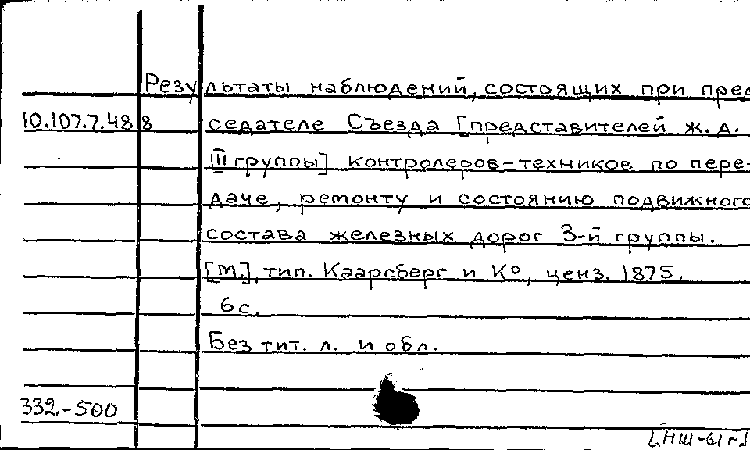 Результаты наблюдений, состоящих при пред
10.107.7.488 седателе Съезда [представителей ж.д.
II группы] контролеров-техников по пере-
даче, ремонту и состоянию подвижного
состава железных дорог 3-й группы.
[М.], тип. Каарсберг и К°, ценз. 1875.
6 с.
Без тит. л. и обл.
332-500